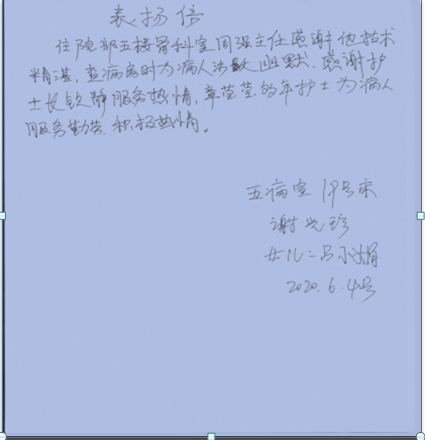 表扬信
住院部五楼骨科室周强主任感谢他技术
精湛,查病房时为病人 幽默,感谢护
士长钦静服务热情,章莹莹 年护士为病人
服务勤劳.积极热情。
五病室19号床
谢 珍
女儿:吕小娟
2020.6.4号